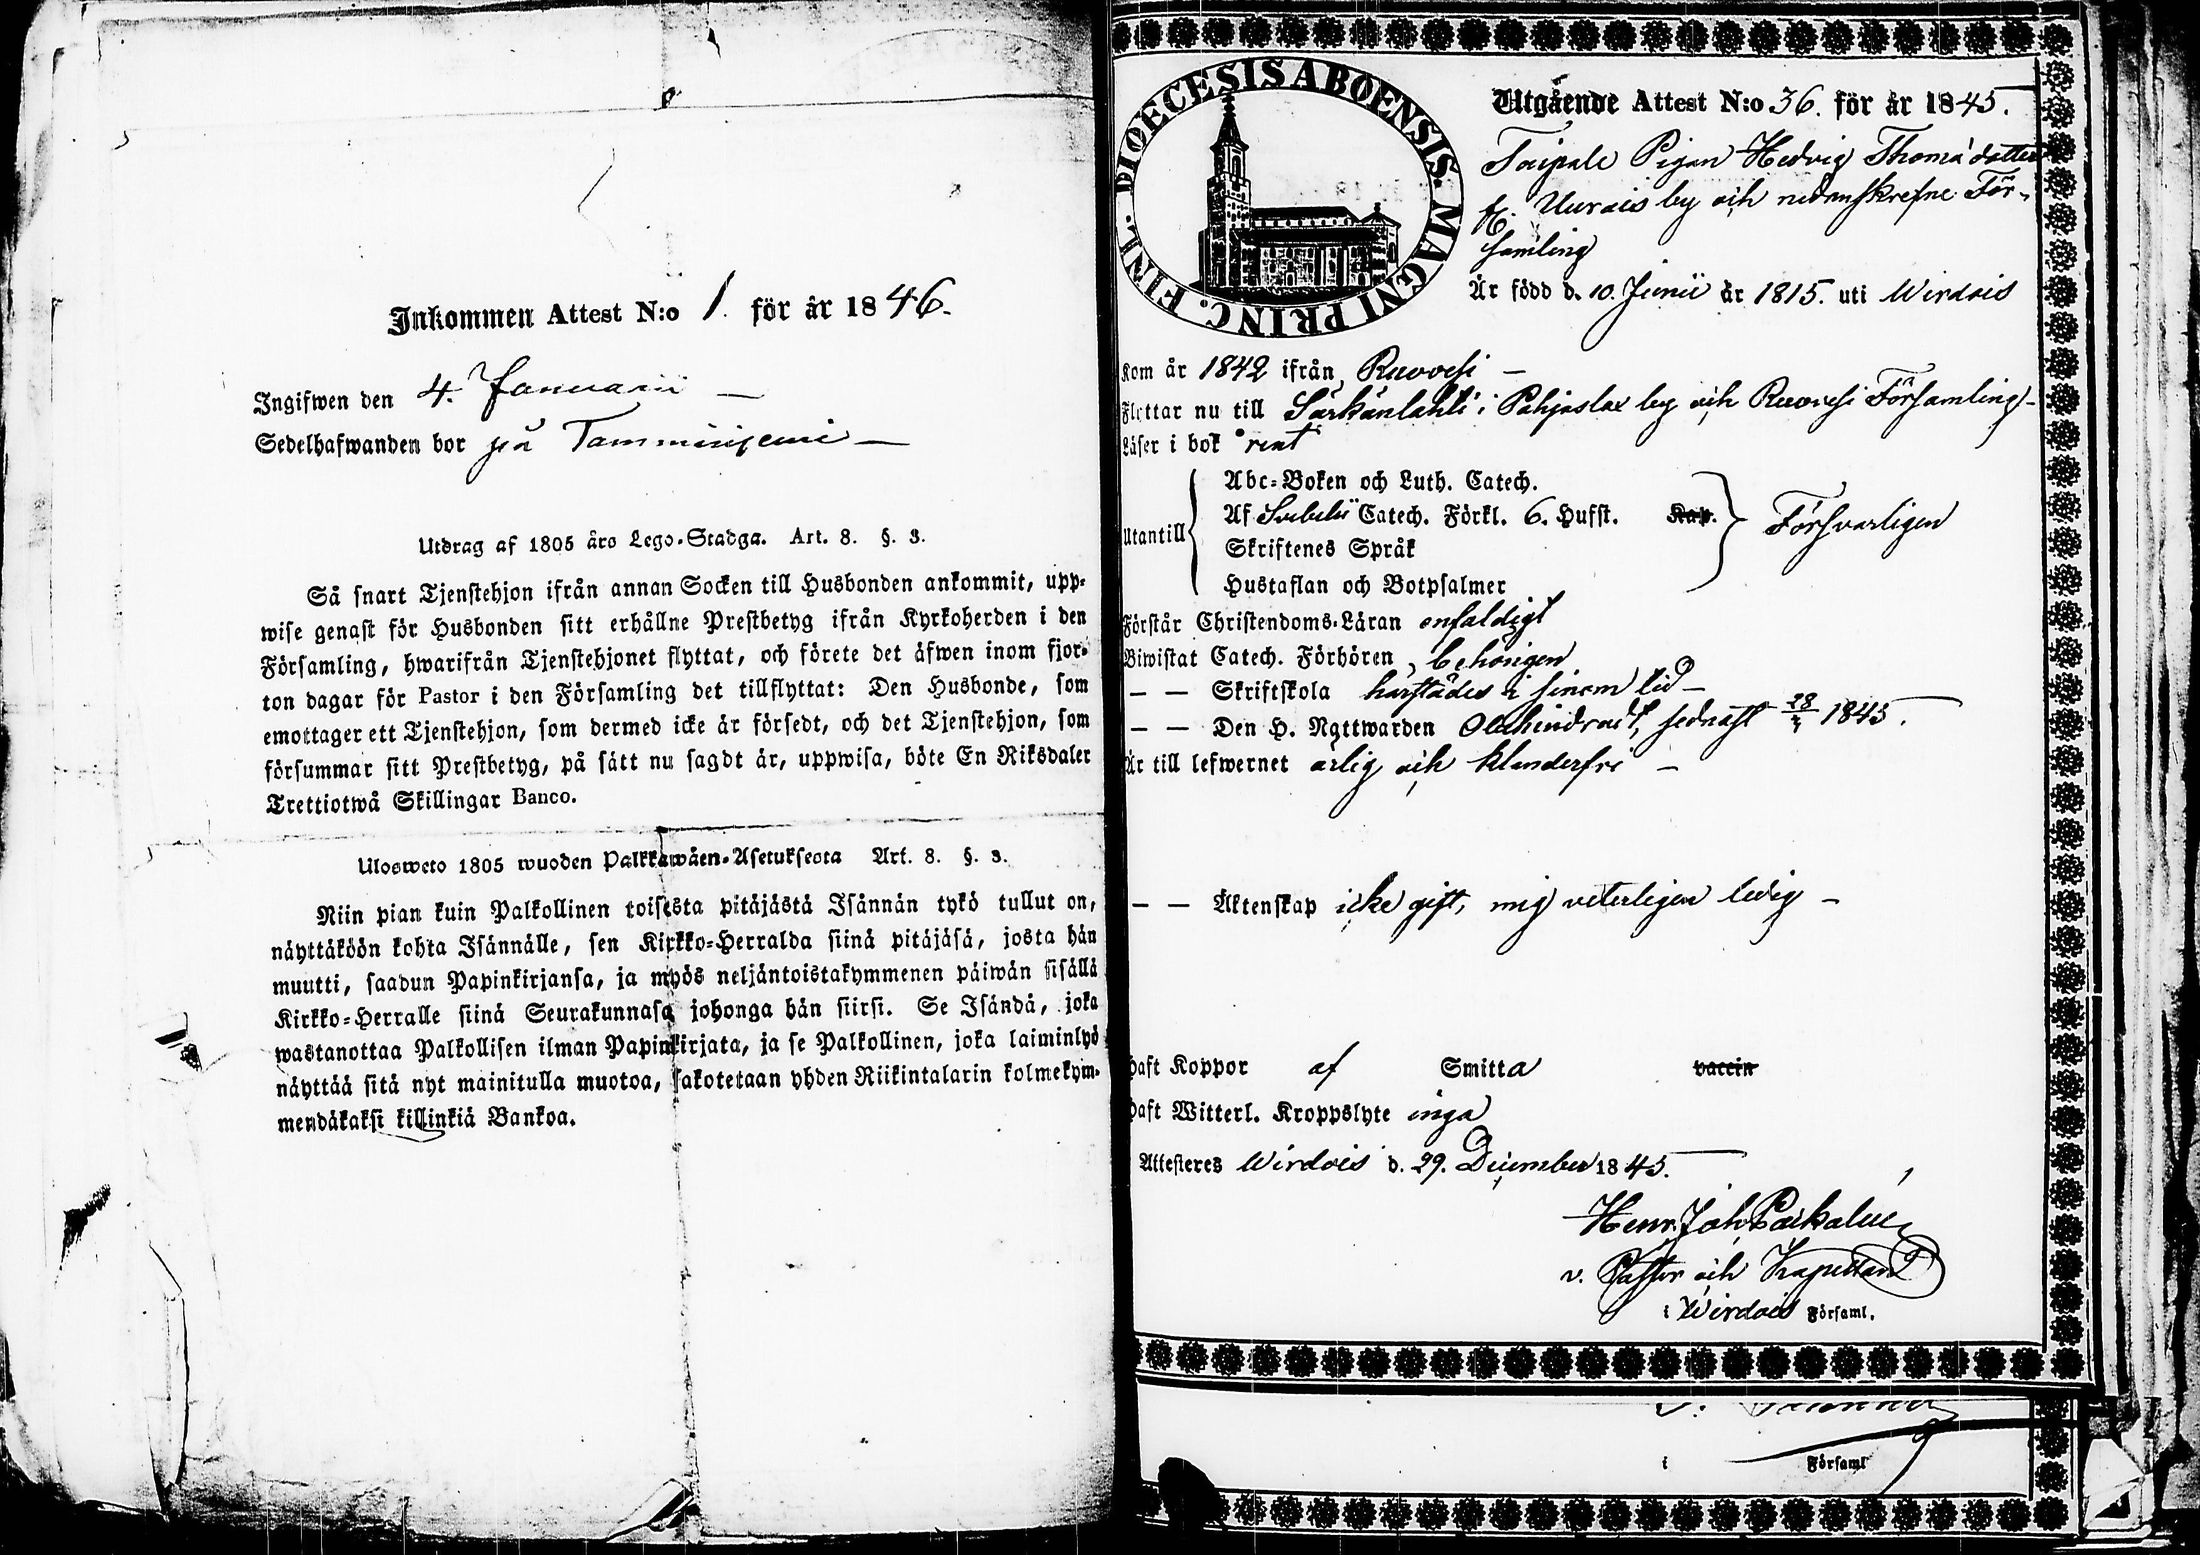 Inkommen Attest N:o 1. för år 1846.
Ingifwen den 4. Januarii —
Sedelhafwanden bor på Tammisijemi —
Utdrag af 1805 års Lego-Stadga. Art. 8. §. 3.
Så snart Tjenstehjon ifrån annan Socken till Husbonden ankommit, upp-
wise genast för Husbonden sitt erhållne Prestbetyg ifrån Kyrkoherden i den
Församling, hwarifrån Tjenstehjonet flyttat, och förete det äfwen inom fjor-
ton dagar för Pastor i den Församling det tillflyttat: Den Husbonde, som
emottager ett Tjenstehjon, som dermed icke är försedt, och det Tjenstehjon, som
försummar sitt Prestbetyg, på sätt nu sagdt är, uppwisa, böte En Riksdaler
Trettiotwå Skillingar Banco.
Ulosweto 1805 wuoden Palkkawäen-Asetuksesta Art. 8. §. 3.
Niin pian kuin Palkollinen toisesta pitäjästä Isännän tykö tullut on,
näyttäköön kohta Isännälle, sen Kirkko-Herralda siinä pitäjäsä, josta hän
muutti, saadun Papinkirjansa, ja myös neljäntoistakymmenen päiwän sisällä
Kirkko-Herralle siinä Seurakunnasa johonga hän siirsi. Se Isändä, joka
wastanottaa Palkollisen ilman Papinkirjata, ja se Palkollinen, joka laiminlyö
näyttää sitä nyt mainitulla muotoa, sakotetaan yhden Riikintalarin kolmekym-
mendäkaksi killinkiä Bankoa.
FINL. DIOECESIS ABOENSIS. MAGNI PRINC.
Utgående Attest N:o 36. för år 1845.
Taipale Pigan Hedvig Thomædotter
fr. Uurais by och nedanskrefne För-
samling
Är född d. 10. Junii år 1815. uti Wirdois
Kom år 1842 ifrån Ruovesi —
Flyttar nu till Särkänlahti i Pohjaslax by och Ruovesi Församling —
Läser i bok rent
Utantill
Abc-Boken och Luth. Catech.
Af Svebelii Catech. Förkl. 6. Hufst. Kap.
Skriftenes Språk
Hustaflan och Botpsalmer
Försvarligen
Förstår Christendoms-Läran enfaldigt
Biwistat Catech. Förhören behörigen
— — Skriftskola härstädes i sinom tid —
— — Den H. Nattwarden Obehindradt, sednast 28/ 1845.
Är till lefwernet ärlig och klanderfri —
— — Äktenskap icke gift, mig veterligen ledig —
Haft Koppor af Smitta vaccin
Haft Witterl. Kroppslyte inga
Attesteres Wirdois d. 29. December 1845.
Henr. Joh.
v. Pastor och Kapellan
i Wirdois Församl.
i Församl